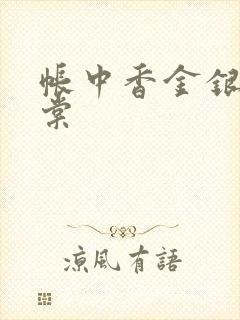 帳中香金銀
棠
涼風有語